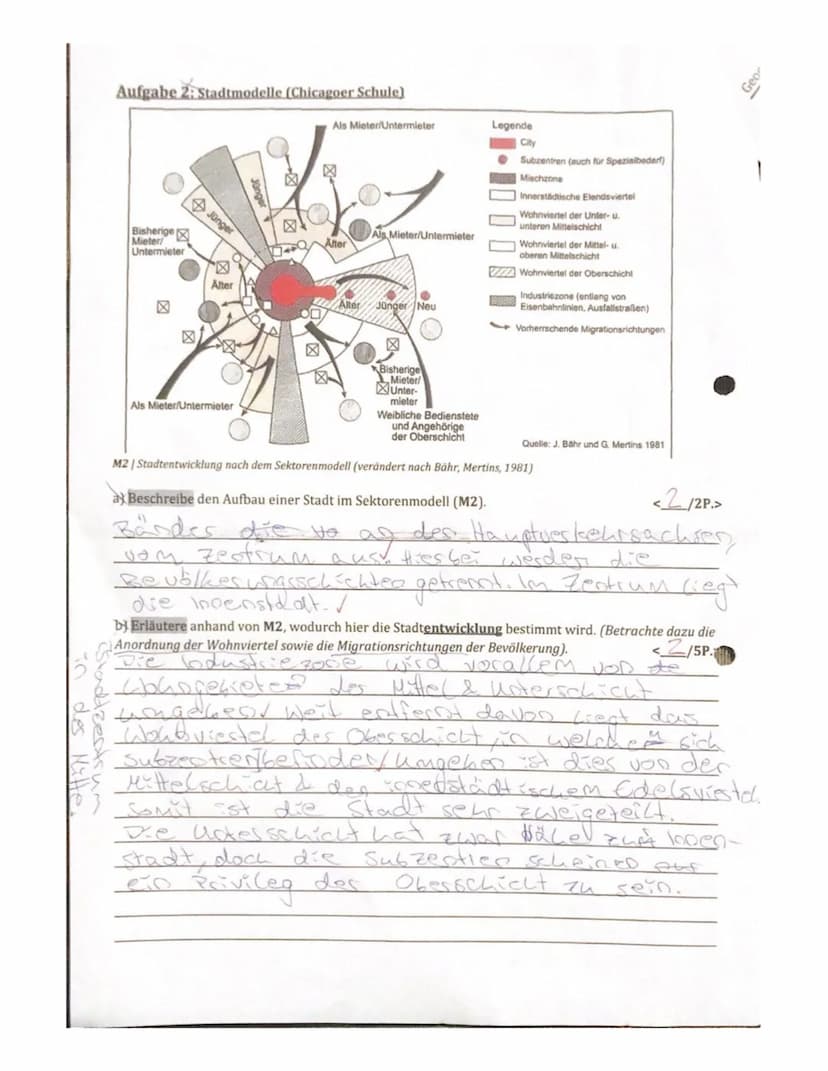 Geo
Aufgabe 2: Stadtmodelle (Chicagoer Schule)
Als Mieter/Untermieter
Jünger
Jünger
Bisherige
Mieter/
Untermieter
Älter
Als Mieter/Untermieter
Älter
Älter Jünger Neu
Als Mieter/Untermieter
Bisherige
Mieter/
Unter-
mieter
Weibliche Bedienstete
und Angehörige
der Oberschicht
Legende
City
Subzentren (auch für Spezialbedarf)
Mischzone
Innerstädtische Elendsviertel
Wohnviertel der Unter- u.
unteren Mittelschicht
Wohnviertel der Mittel- u.
oberen Mittelschicht
Wohnviertel der Oberschicht
Industriezone (entlang von
Eisenbahnlinien, Ausfallstraßen)
Vorherrschende Migrationsrichtungen
Quelle: J. Bähr und G. Mertins 1981
M2 | Stadtentwicklung nach dem Sektorenmodell (verändert nach Bähr, Mertins, 1981)
a) Beschreibe den Aufbau einer Stadt im Sektorenmodell (M2). <2/2P.>
Bänder an der Hauptverkehrsachsen,
vom Zentrum aus. Hierbei werden die
Bevölkerungsschichten getrennt. Im Zentrum liegt
die Innenstadt.
b) Erläutere anhand von M2, wodurch hier die Stadtentwicklung bestimmt wird. (Betrachte dazu die
Anordnung der Wohnviertel sowie die Migrationsrichtungen der Bevölkerung). <2/5P.>
Die Industriezone wird vorallem von
Wohngebieten der Mittel & Unterschicht
umgeben. Weit entfernt davon liegt das
Wohnviertel der Oberschicht, in welchem sich
Subzentren befinden. Umgeben ist dies von der
Mittelschicht & den innerstädtischem Edelsviertel.
Somit ist die Stadt sehr zweigeteilt.
Die Unterschicht hat zwar Nähe zur Innen-
stadt, doch die Subzentren scheinen nur
ein Privileg der Oberschicht zu sein.
Stadtzentrum
in der Mitte.